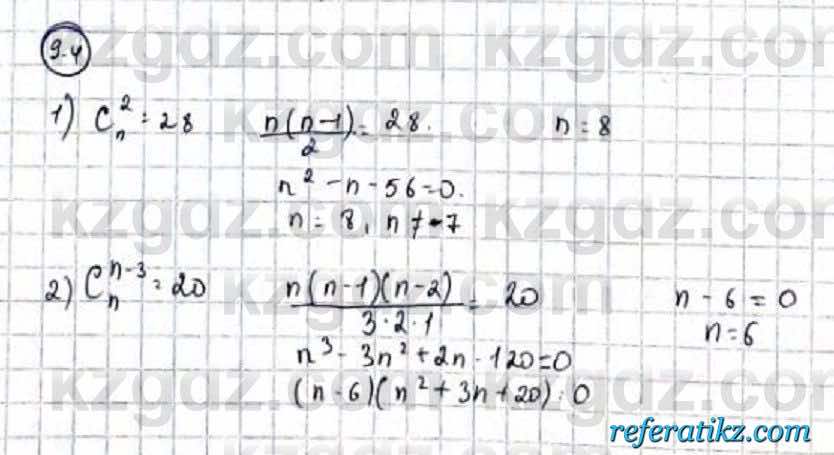 9.4
1) C_n^2 = 28 n(n-1)/2 = 28. n = 8
n² - n - 56 = 0.
n = 8, n ≠ -7
2) C_n^{n-3} = 20 n(n-1)(n-2)/3·2·1 = 20 n - 6 = 0
n = 6
n³ - 3n² + 2n - 120 = 0
(n-6)(n² + 3n + 20) = 0
kzgdz.com
referatikz.com